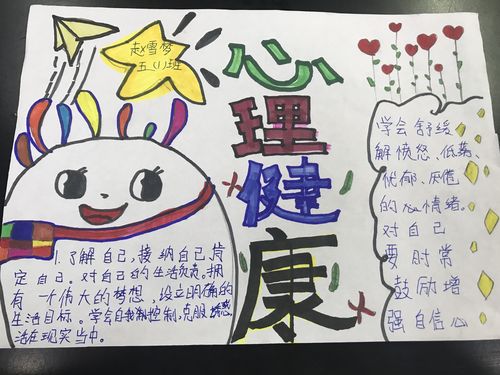 赵雪梦
五(1)班
心
理
健
康
1.了解自己,接纳自己,肯
定自己。对自己的生活负责。拥
有一个伟大的梦想,设立明确的
生活目标。学会自我控制,克服
活在现实当中。
学会舒缓
解愤怒、低落、
忧郁、厌倦
的心情绪。
对自己
要时常
鼓励增
强自信心